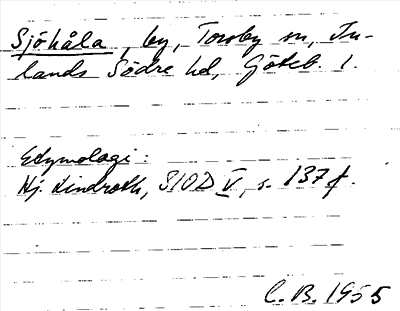 Sjöhåla, by, Torsby sn, In-
lands Södre hd, Göteb. l.
Etymologi:
Hj. Lindroth, SIOD V, s. 137 f.
C. B. 1955